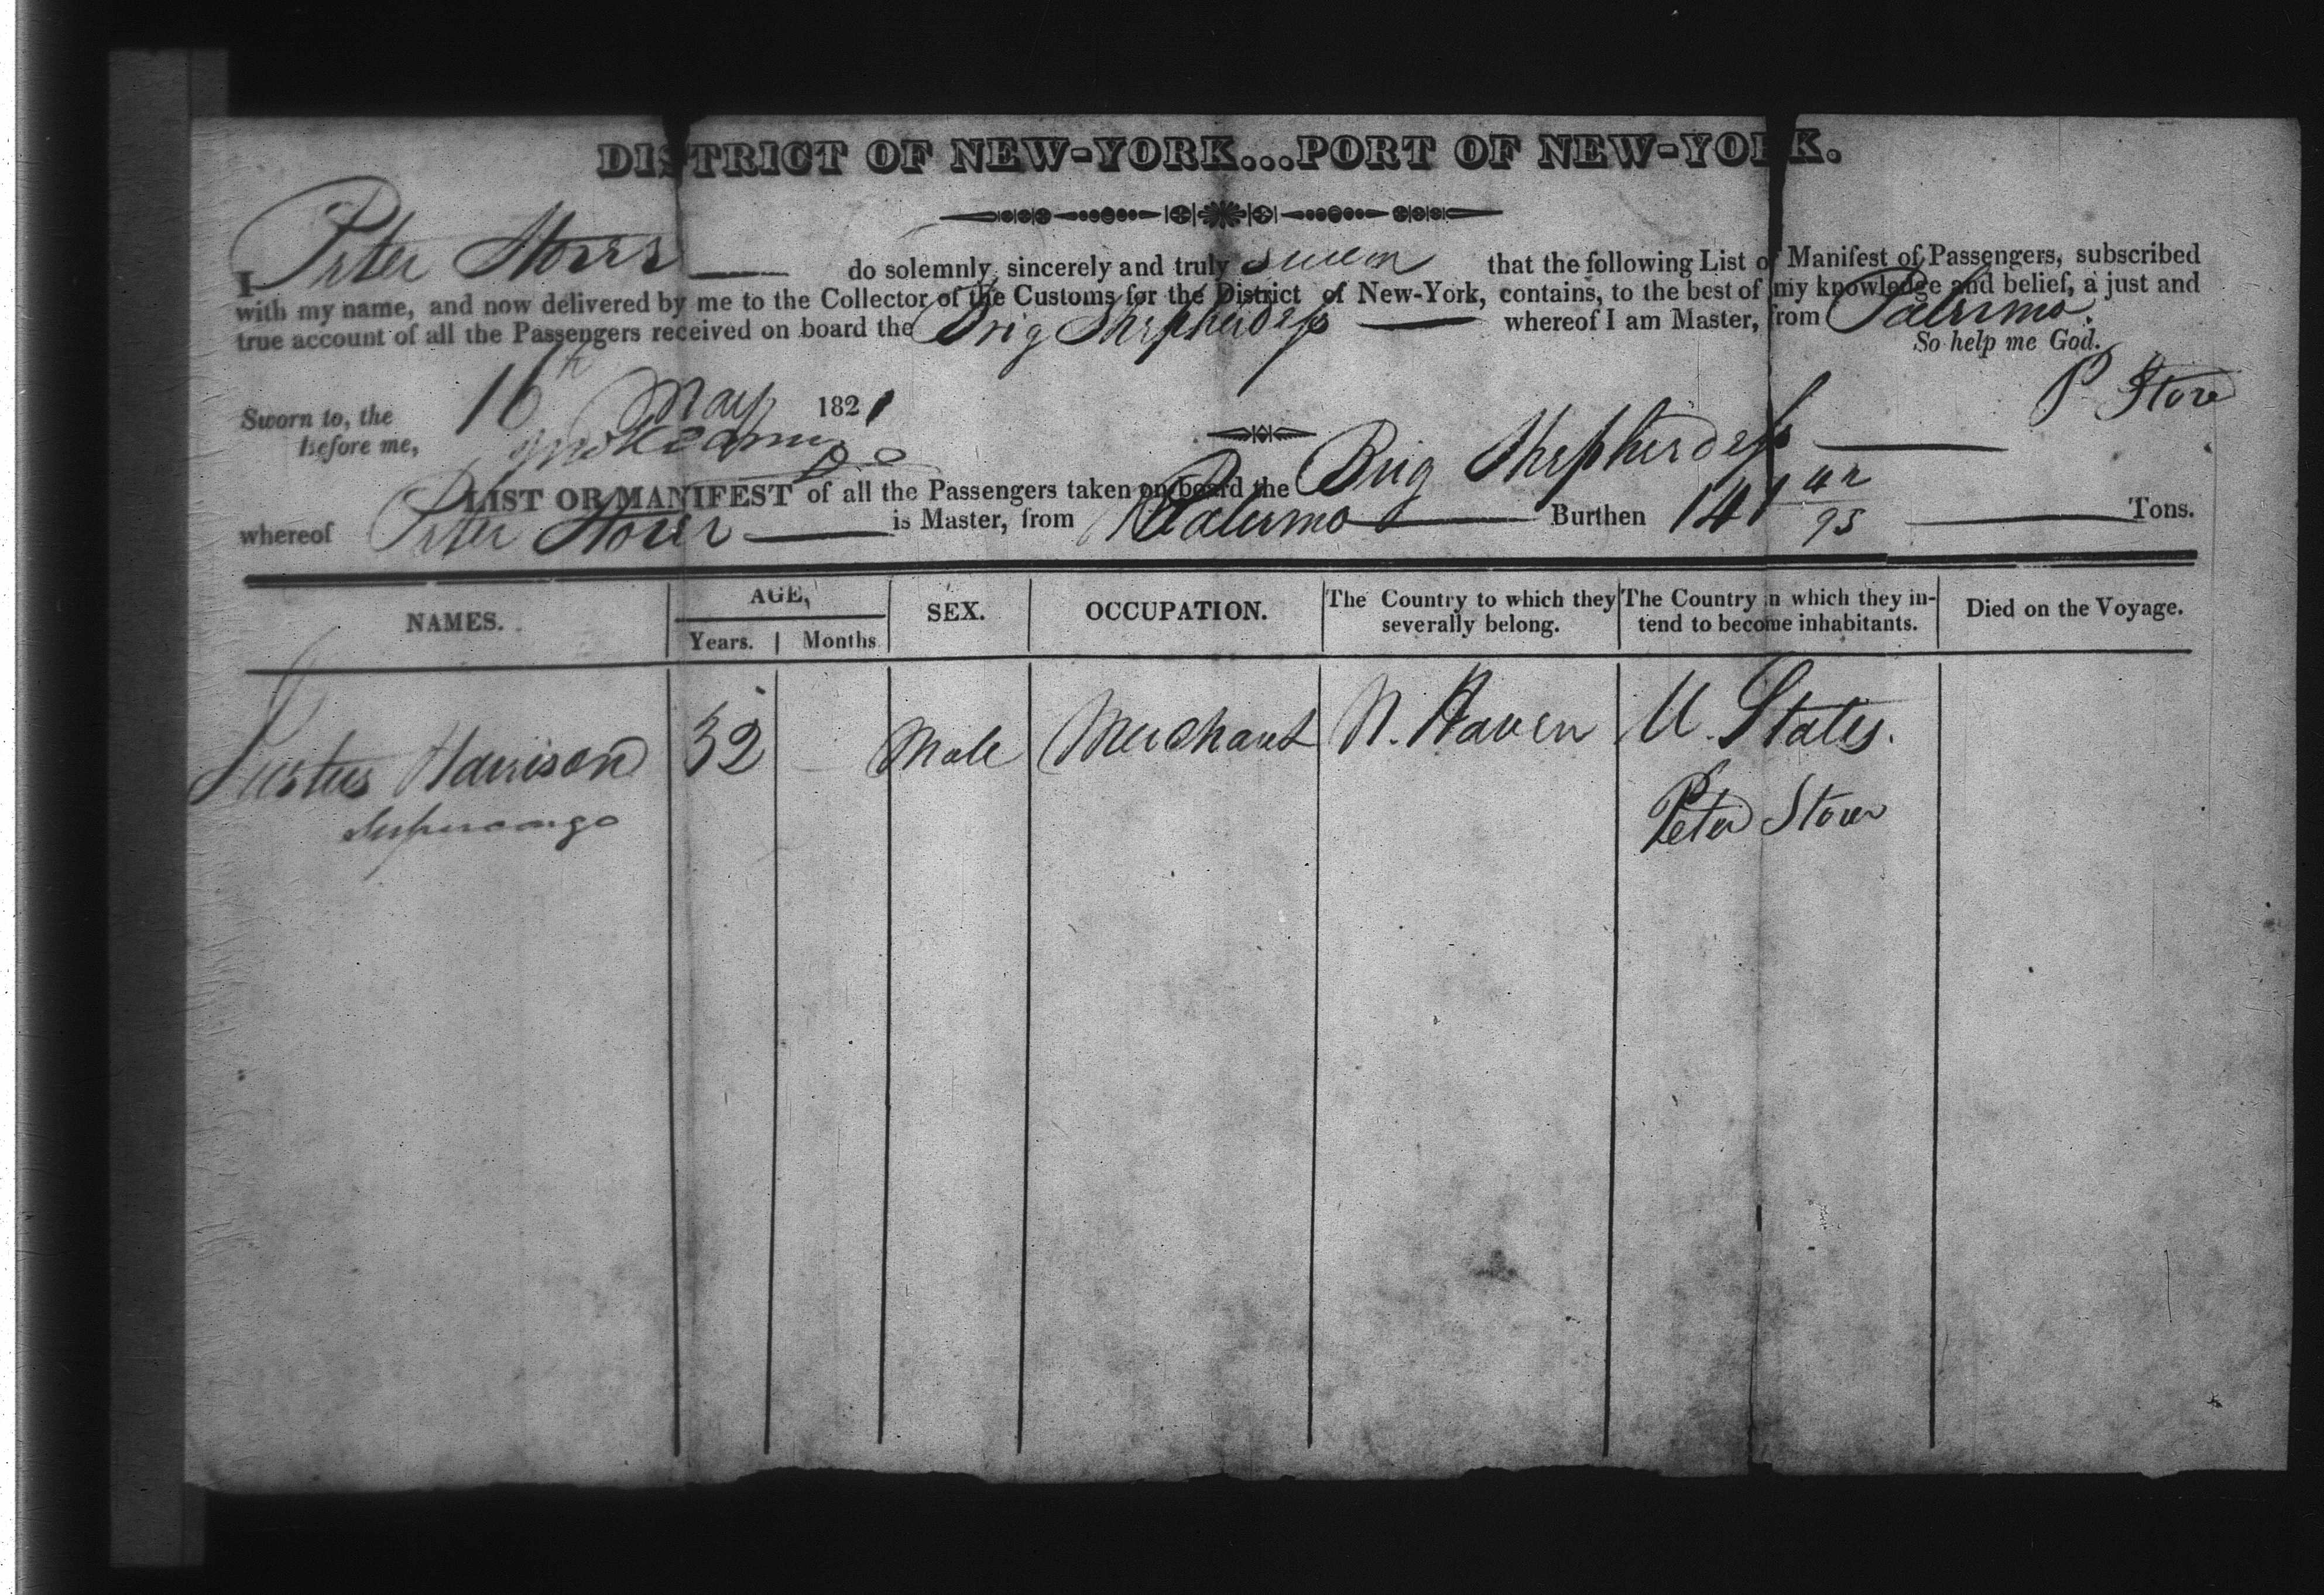 DISTRICT OF NEW-YORK...PORT OF NEW-YORK.
I Peter Storer do solemnly, sincerely and truly swear that the following List or Manifest of Passengers, subscribed
with my name, and now delivered by me to the Collector of the Customs for the District of New-York, contains, to the best of my knowledge and belief, a just and
true account of all the Passengers received on board the Brig Shepherdess whereof I am Master, from Palermo.
So help me God.
Sworn to, the 16th May 1821 P Storer
Before me,
LIST OR MANIFEST of all the Passengers taken on board the Brig Shepherdess
whereof Peter Storer is Master, from Palermo Burthen 141 42/95 Tons.
NAMES. AGE, SEX. OCCUPATION. The Country to which they severally belong. The Country in which they intend to become inhabitants. Died on the Voyage.
Years. Months
Justus Harrison 32 Male Merchant N. Haven U. States.
Supercargo Peter Storer